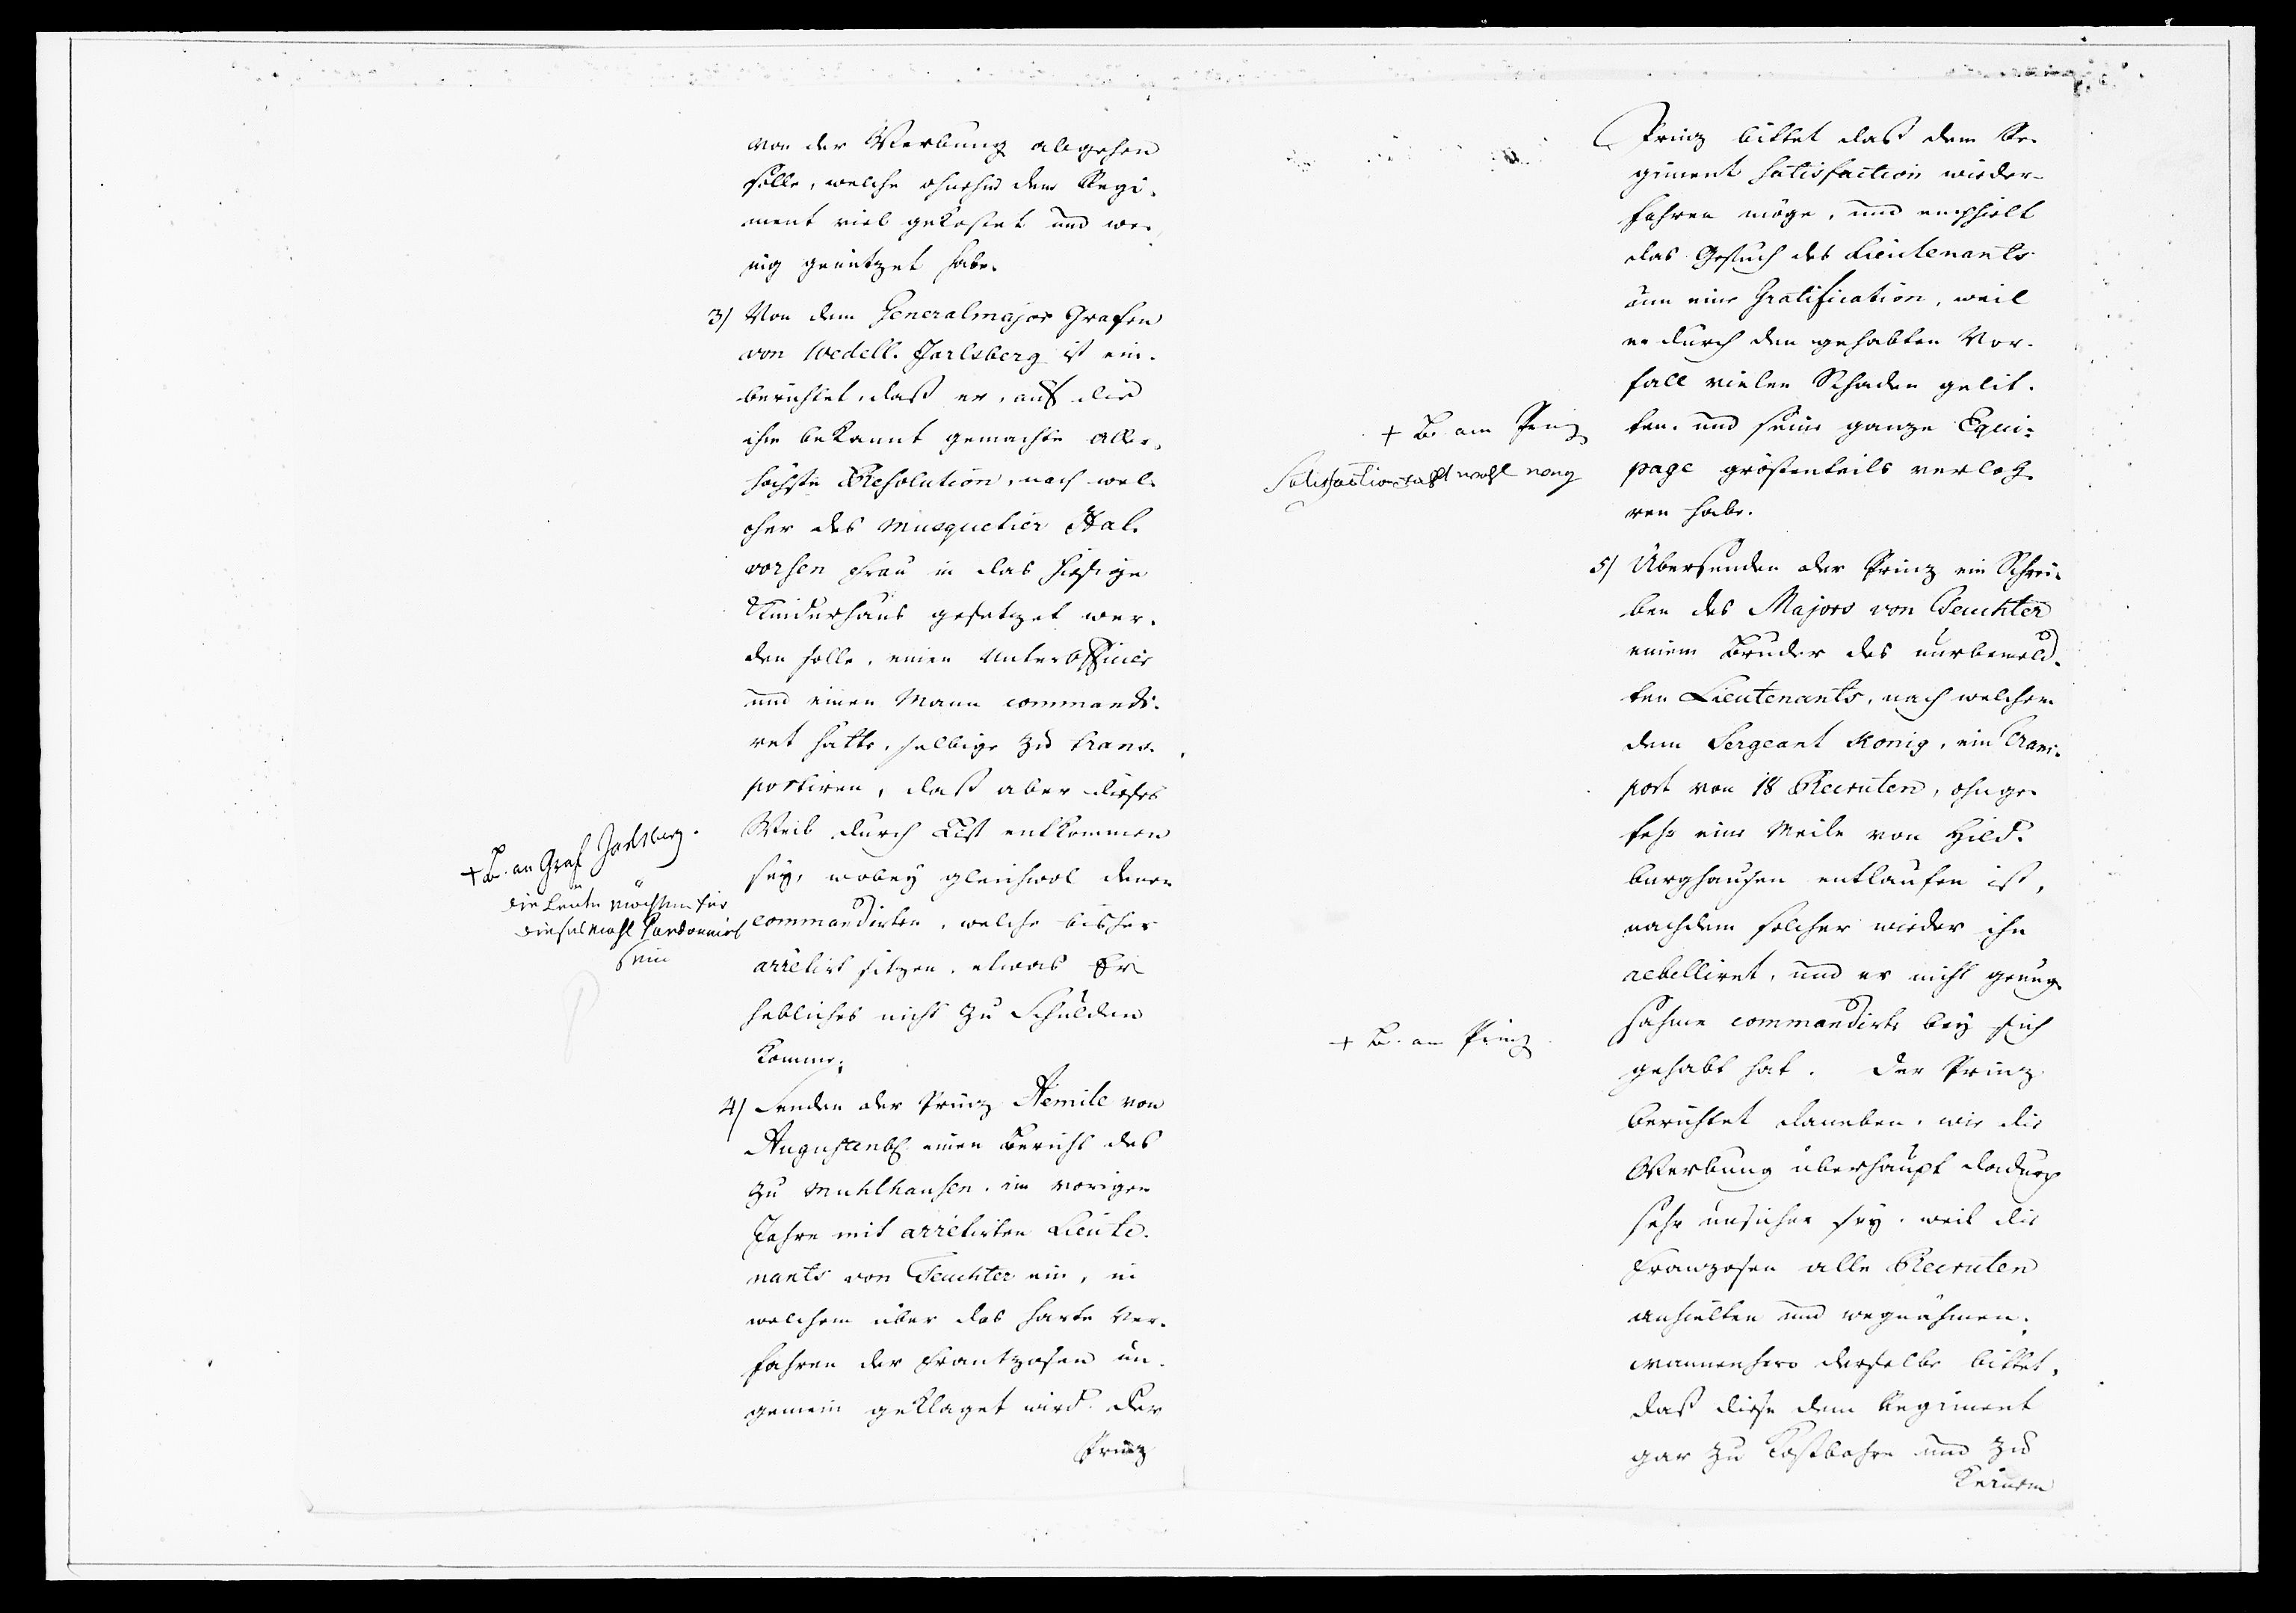 von der Werbung abgehen
solle, welche ohnehin dem Regi-
ment viel gekostet und we-
nig genützet habe.
3) Von dem Generalmajor Grafen
von Wedell-Jarlsberg ist ein-
berichtet, daß er, auf die
ihm bekannt gemachte Aller-
höchste Resolution, nach wel-
cher des Musquetier Hal-
vorsen Frau in das hiesige
Kinderhaus gesetzet wer-
den solle, einen Unterofficier
und einen Mann commandi-
ret hatte, selbige zu trans-
portiren, daß aber dieses
Weib durch List entkommen
sey, wobey gleichwol denen
commandirten, welche bisher
arretirt sitzen, etwas Er-
hebliches nicht zu Schulden
komme;
+ B. an Graf Jarlsberg.
die Leute möchten für
diesesmahl Pardonnirt
sein
4) Senden der Prinz Aemile von
Augustenb. einen Bericht des
zu Muhlhausen im vorigen
Jahre mit arretirten Lieute-
nants von Feuchter ein, in
welchem über das harte Ver-
fahren der Frantzosen un-
gemein geklaget wird. Der
Prinz
Prinz bittet daß dem Re-
giment Satisfaction wieder-
fahren möge, und empfielt
das Gesuch des Lieutenants
um eine Gratification, weil
er durch den gehabten Vor-
fall vielen Schaden gelit-
ten, und seine ganze Equi-
page gröstenteils verloh-
ren habe.
+ B. am Prinz
Satisfaction wohl
5) Übersenden der Prinz ein Schrei-
ben des Majors von Feuchter
einem Bruder des
ten Lieutenants, nach welchem
dem Sergeant König, ein Trans-
port von 18 Recruten, ohnge-
fehr eine Meile von Hild-
burghausen entlaufen ist,
nachdem solcher wieder ihn
rebelliret, und er nicht genug-
sahme commandirte bey sich
gehabt hat. Der Prinz
berichtet daneben, wie die
Werbung überhaupt dadurch
sehr unsicher sey, weil die
Franzosen alle Recruten
anhielten und wegnähmen;
wannenhero derselbe bittet,
daß diese dem Regiment
gar zu kostbahre und zu
keinem
+ B. am Prinz